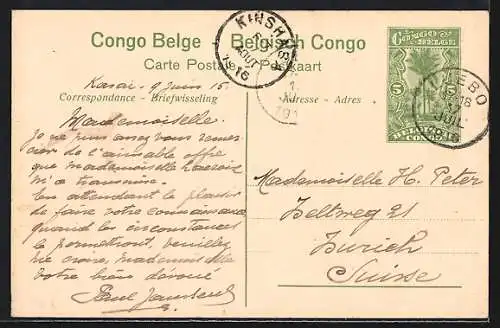 Congo Belge - Belgisch Congo
Carte Postale - Postkaart
CONGO
BELGE
5 5
KINSHASA
AOUT
1916
ILEBO
JUIL
1916
Kasai - 9 juin 15.
Correspondance - Briefwisseling
Adresse - Adres
Mademoiselle.
Je ne puis assez vous remer-
cier de l'aimable offre
que mademoiselle
m'a transmise.
En attendant le plaisir
de faire votre connaissance
quand les circonstances
le permettront, veuillez
me croire, mademoiselle
votre bien dévoué
Paul
Mademoiselle H. Peter
Beltweg 21
Zurich
Suisse